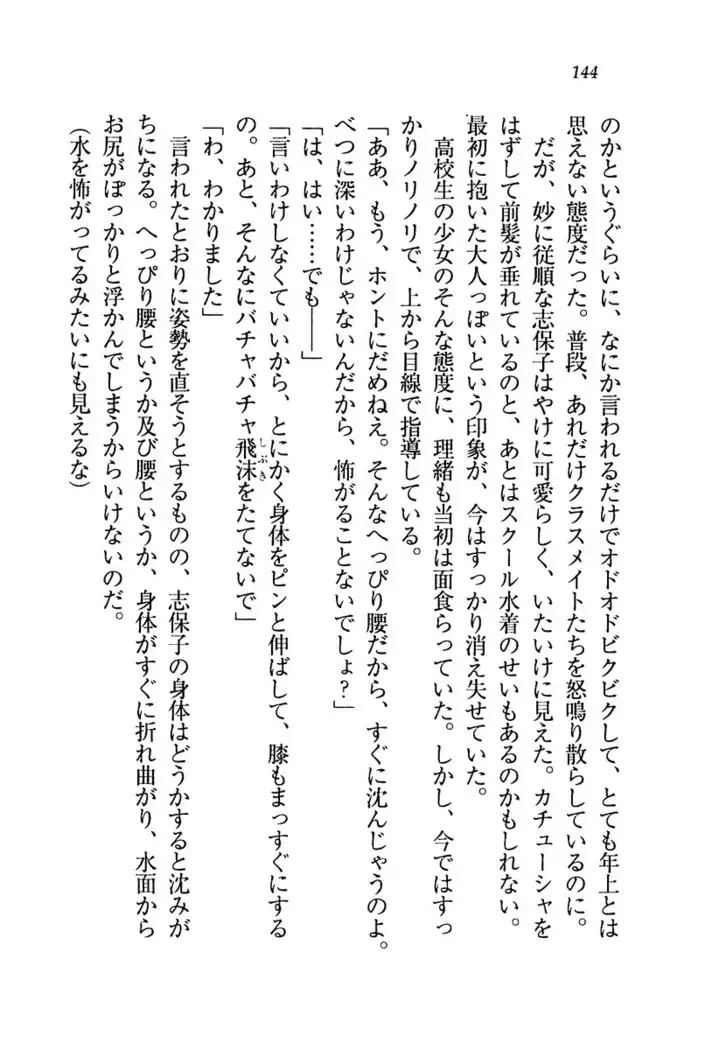 144
のかというぐらいに、なにか言われるだけでオドオドビクビクして、とても年上とは
思えない態度だった。普段、あれだけクラスメイトたちを怒鳴り散らしているのに。
だが、妙に従順な志保子はやけに可愛らしく、いたいけに見えた。カチューシャを
はずして前髪が垂れているのと、あとはスクール水着のせいもあるのかもしれない。
最初に抱いた大人っぽいという印象が、今はすっかり消え失せていた。
高校生の少女のそんな態度に、理緒も当初は面食らっていた。しかし、今ではすっ
かりノリノリで、上から目線で指導している。
「ああ、もう、ホントにだめねえ。そんなへっぴり腰だから、すぐに沈んじゃうのよ。
べつに深いわけじゃないんだから、怖がることないでしょ？」
「は、はい……でも――」
「言いわけしなくていいから、とにかく身体をピンと伸ばして、膝もまっすぐにする
の。あと、そんなにバチャバチャ飛沫をたてないで」
しぶき
「わ、わかりました」
言われたとおりに姿勢を直そうとするものの、志保子の身体はどうかすると沈みが
ちになる。へっぴり腰というか及び腰というか、身体がすぐに折れ曲がり、水面から
お尻がぽっかりと浮かんでしまうからいけないのだ。
（水を怖がってるみたいにも見えるな）